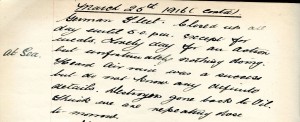 March 25th 1916 (contd)
German Fleet. Closed up all
day until 6.0 p.m. except for
meals. Lovely day for an action
At Sea. but unfortunately nothing doing.
Heard air raid was a success
but do not know any definite
details. Destroyers gone back to
think we are repeating dose